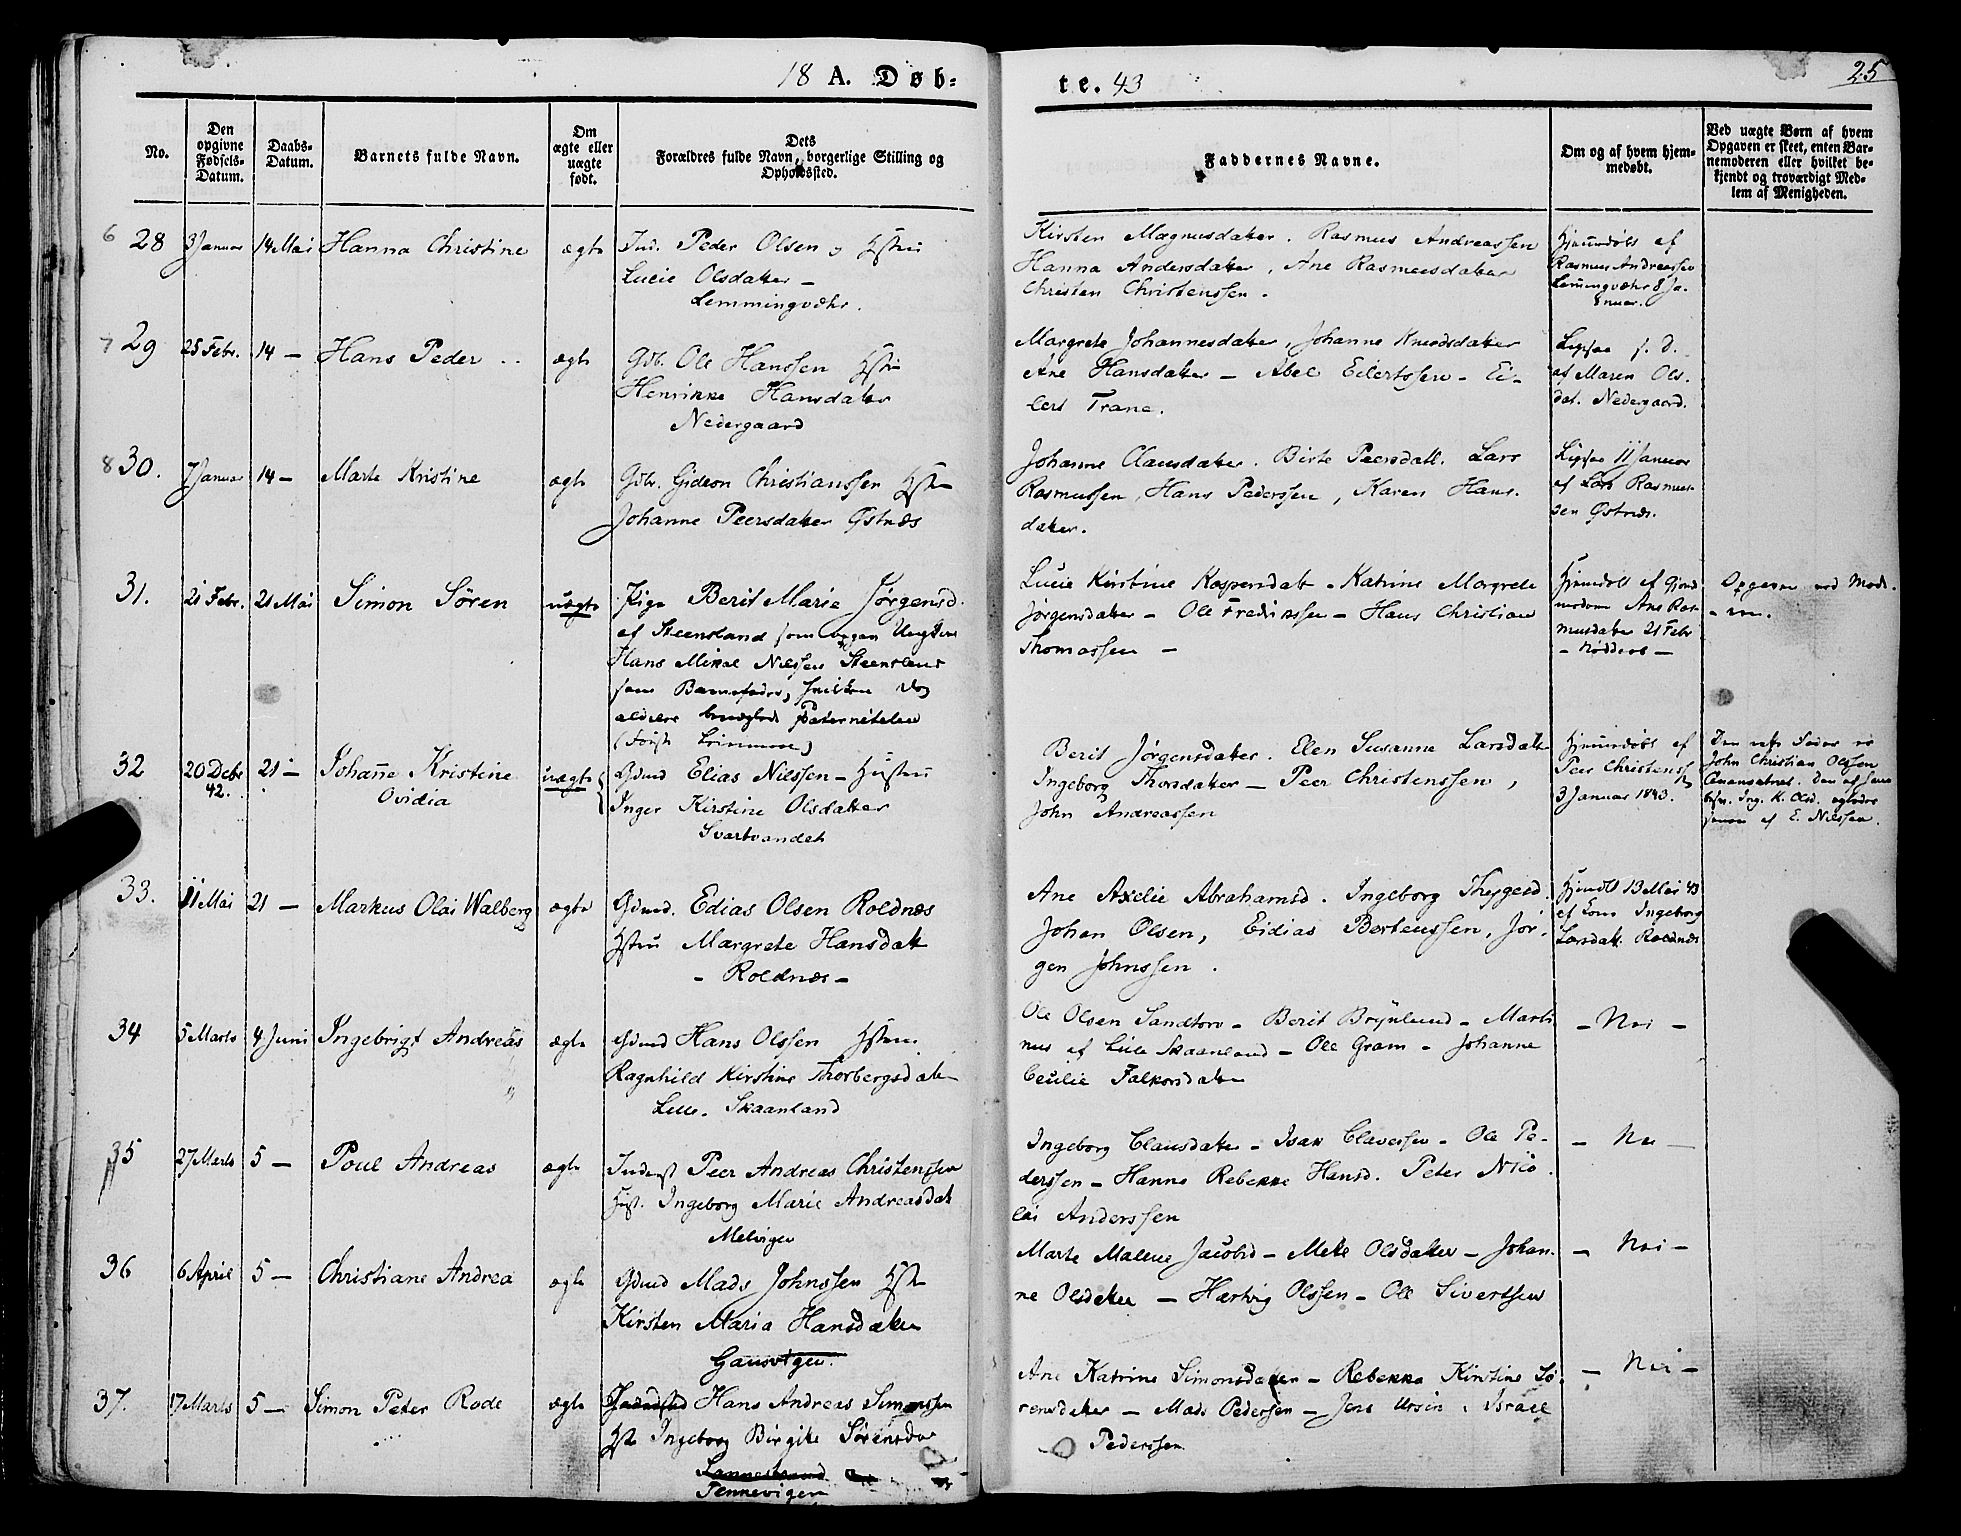 18 A. Døb=
te. 43
25
No.
Den opgivne Fødsels-Datum.
Daabs-Datum.
Barnets fulde Navn.
Om ægte eller uægte født.
Dets Forældres fulde Navn, borgerlige Stilling og Opholdssted.
Faddernes Navne.
Om og af hvem hjemmedøbt.
Ved uægte Børn af hvem Opgaven er skeet, enten Barnemoderen eller hvilket bekjendt og troværdigt Medlem af Menigheden.
6 28 3 Januar 14 Mai Hanna Christine ægte
Ind. Peder Olsen
Lucie Olsdatter –
Lemmingvær.
Kirsten Magnusdatter. Rasmus Andreassen
Hanna Andersdatter, Ane Rasmusdatter
Christen Christenssen.
Hjemmedøbt af
Rasmus Andreassen
7 29 25 Febr. 14 – Hans Peder ægte
Gdb. Ole Hanssen Hstru
Henrikke Hansdatter
Nedergaard
Margrete Johannesdatter, Johanne Knudsdatter
Ane Hansdatter – Abel Eilertssen – Ei-
lert Trane.
af Maren Ols.
dat. Nedergaard.
8 30. 7 Januar 14 – Marte Kristine ægte
Gdbr. Gideon Christianssen Hstru
Johanne Peersdatter Østnæs
Johanne Clausdatter. Birte Peersdatt. Lars
Rasmussen, Hans Pederssen, Karen Hans-
datter.
Ligesaa 11 Januar
af Lars Rasmus-
sen Østnæs.
31. 21 Febr. 21 Mai Simon Sören uægte
Pige Berit Marie Jørgensd.
af Steensland som opgav Ungkarl
Hans Mikal Nilssen Steensland
som Barnefader, hvilken dog
(Første Leiermaal)
Lucie Kirstine Kaspersdatt – Katrine Margrete
Jørgensdatter – Ole Fredrikssen – Hans Christian
Thomassen –
Hjemmedøbt af Gjord-
moderen Ane Ras-
musdatter 21 Febr
Opgaven ved Mode-
ren.
32 20 Debr 42. 21 – Johanne Kristine
Ovidia uægte
Gdmd Elias Nilssen – Hustru
Inger Kirstine Olsdatter
Svartvandet
Berit Jørgensdatter. Elen Susanne Larsdatt
Ingeborg Thorsdatter – Peer Christenssen,
John Andreassen
Hjemmedøbt af
Peer Christenss.
3 Januar 1843.
Den rette Fader er
John Christian Olssen
33. 11 Mai 21 – Markus Olai Walberg ægte
Gdmd. Edias Olsen Roldnæs
Hstru Margrete Hansdatt
– Roldnæs –
Ane Axelie Abrahamsd. Ingeborg Thygesd.
Johan Olsen, Eidias Bertenssen, Jør-
gen Johnssen.
Hjemdøbt 13 Mai 43
Ingeborg
Larsdatt. Roldnæs
34 5 Marts 4 Juni Ingebrigt Andreas ægte
Gdmd Hans Olssen Hstru
Ragnhild Kirstine Thorbergsdatter
Lille. Skaanland
Ole Olsen Sandtorv – Berit Brynlund – Marti-
nus af Lille Skaanland – Ole Gram – Johanne
Cecilie Falkorsdatter
– Nei –
35 27 Marts 5 – Poul Andreas ægte
Inderst Peer Andreas Christenssen
Hust. Ingeborg Marie Andreasdatt
Melvigen
Ingeborg Clausdatter – Isak Clavessen – Ole Pe-
derssen – Hanne Rebekke Hansd. Peter Nico-
lai Anderssen
– Nei –
36 6 April 5 – Christiane Andrea ægte
Gdmd Mads Johnssen Hstru
Kirsten Maria Hansdatter
Gausvigen.
Marte Malene Jacobsd – Mette Olsdatter – Johan-
ne Olsdatter – Hartvig Olssen – Ole Sivertsen
– Nei –
37. 17 Marts 5 – Simon Peter Rode ægte
Hans Andreas Simonssen
Hst Ingeborg Birgitte Sørensdatter
Tennevigen
Ane Katrine Simonsdatter – Rebekka Kirstine Sø-
rensdatter – Mads Pedersen – Jens Ursin. Israel
Pederssen
– Nei –